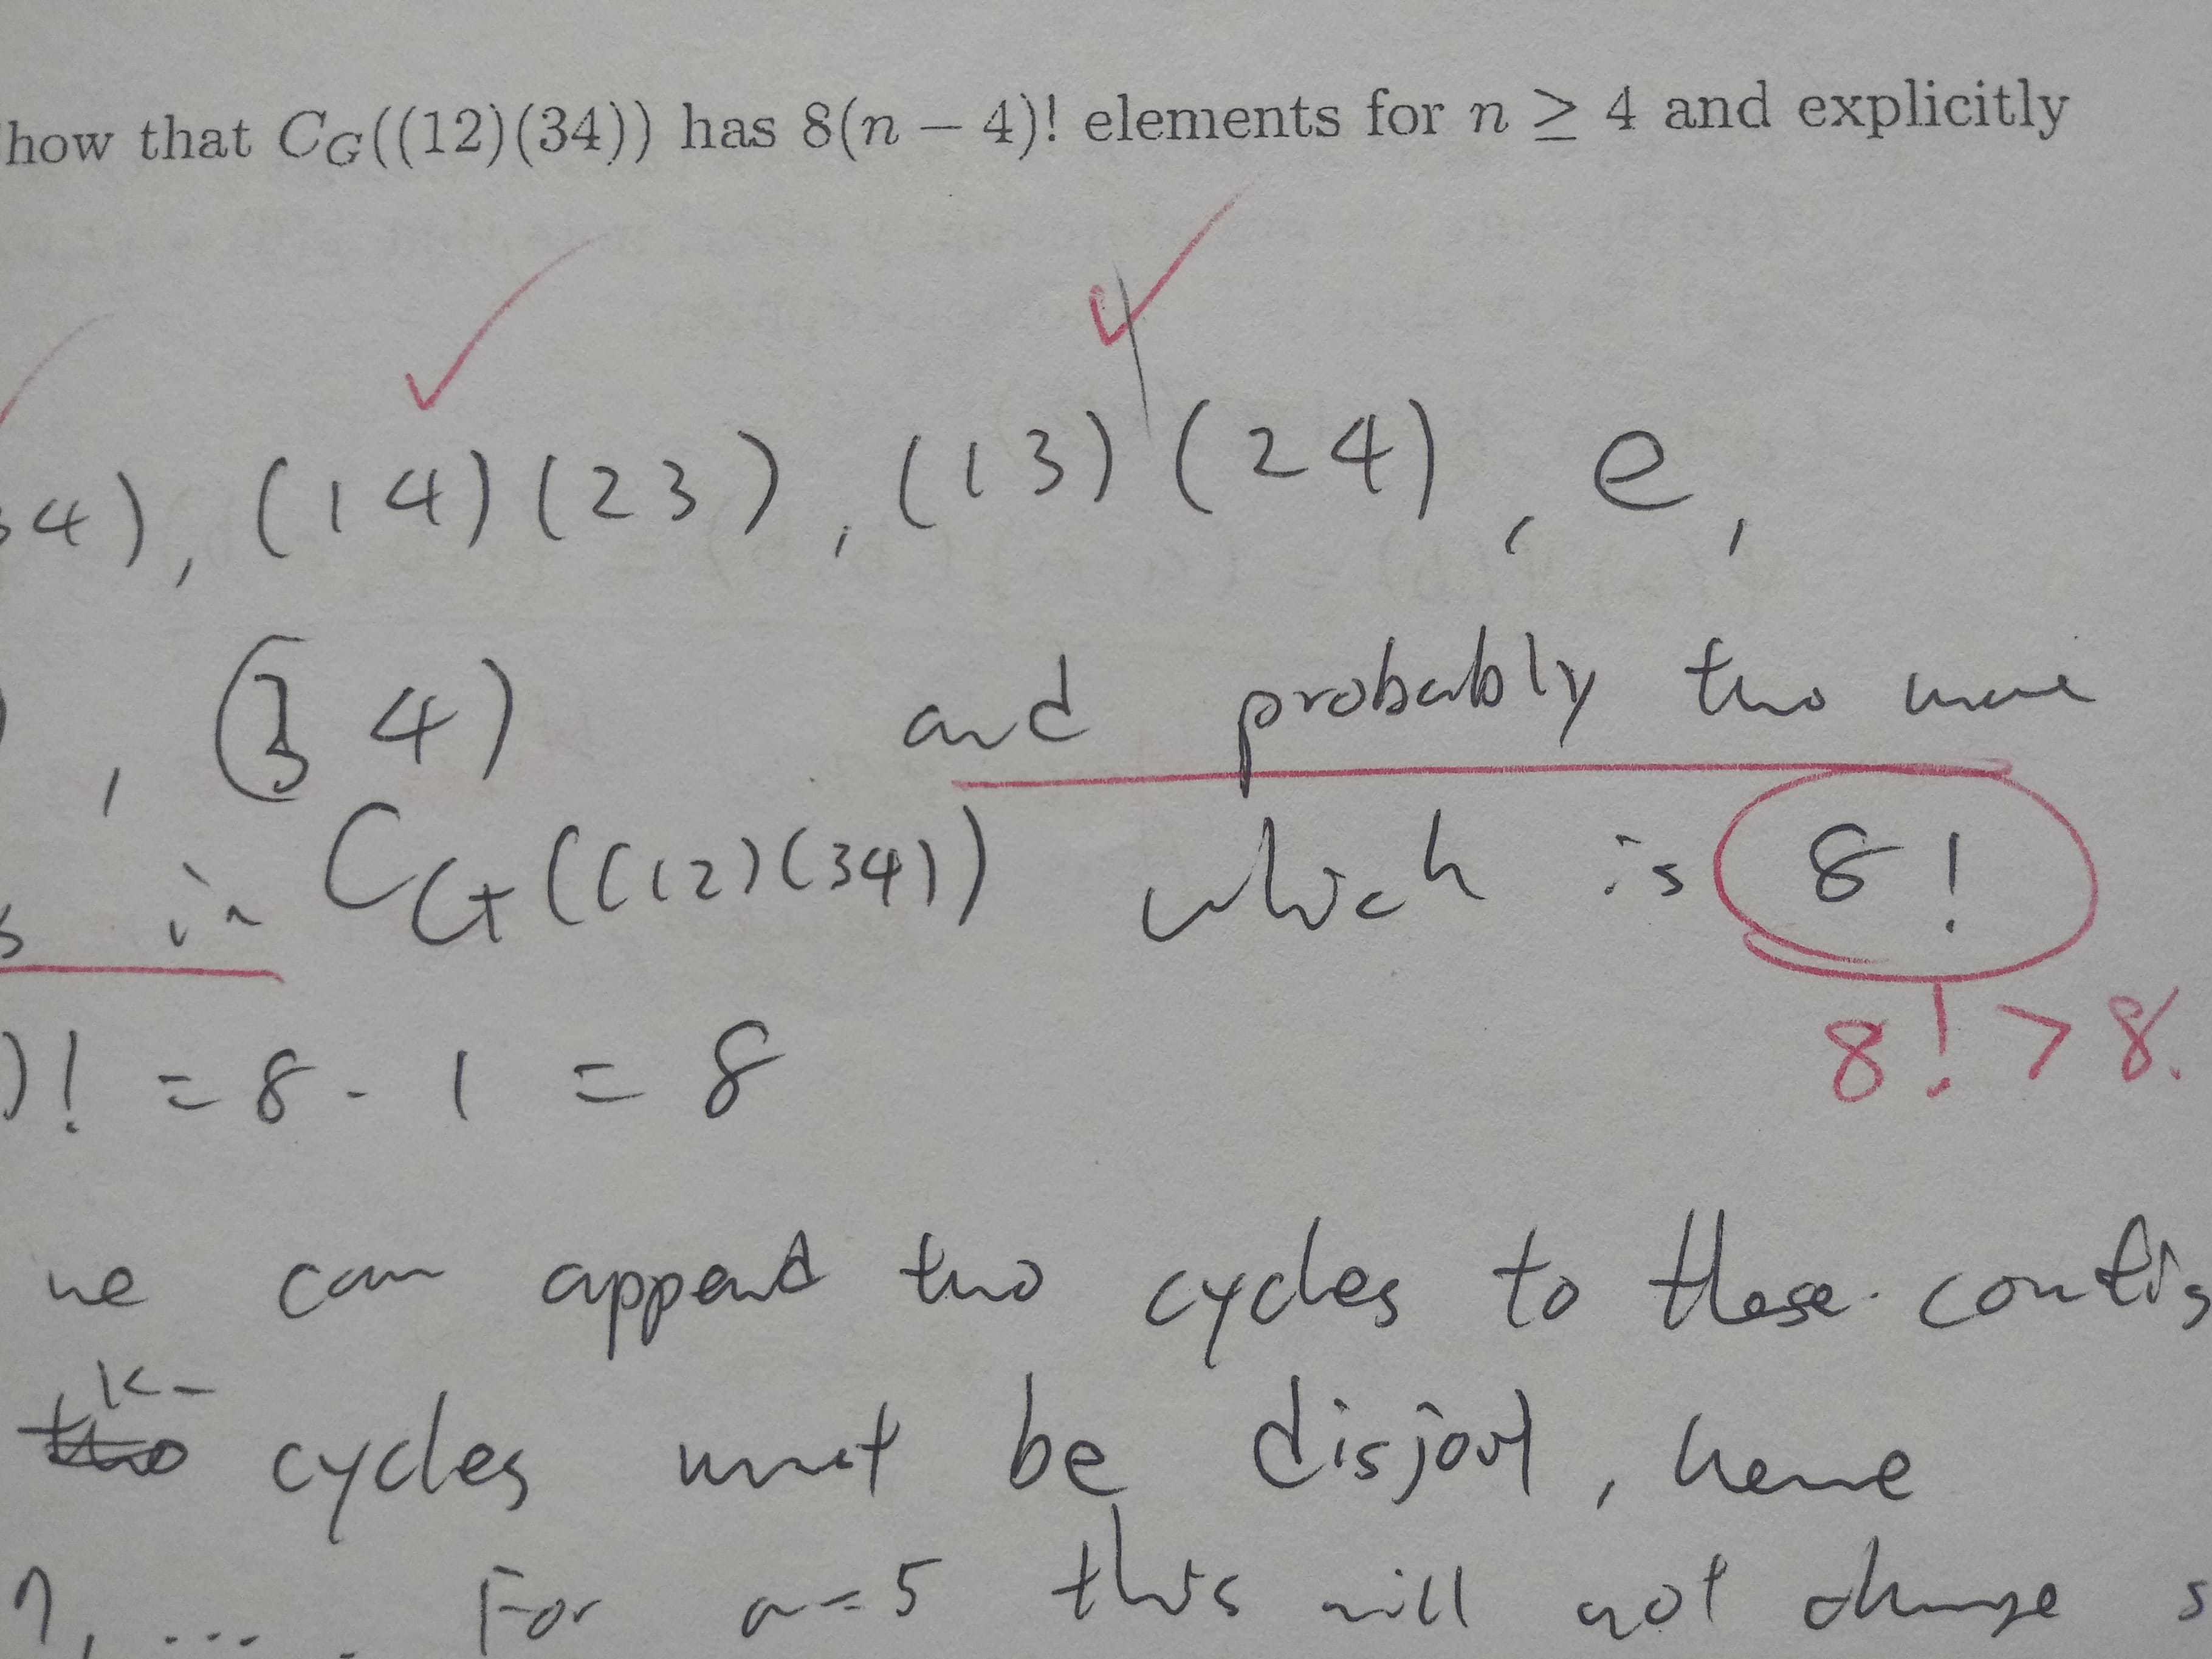 how that C_G((12)(34)) has 8(n − 4)! elements for n ≥ 4 and explicitly
34), (14)(23), (13)(24), e,
), (34) and probably two more
s in C_G((12)(34)) which is 8!
)! = 8 - 1 = 8
8! > 8.
we can append two cycles to these config
k-
two cycles must be disjoint, hence
n, .... For n=5 this will not change s